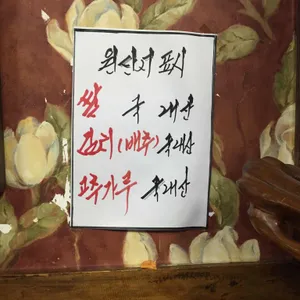 원산지 표시
쌀 국내산
김치(배추) 국내산
고추가루 국내산